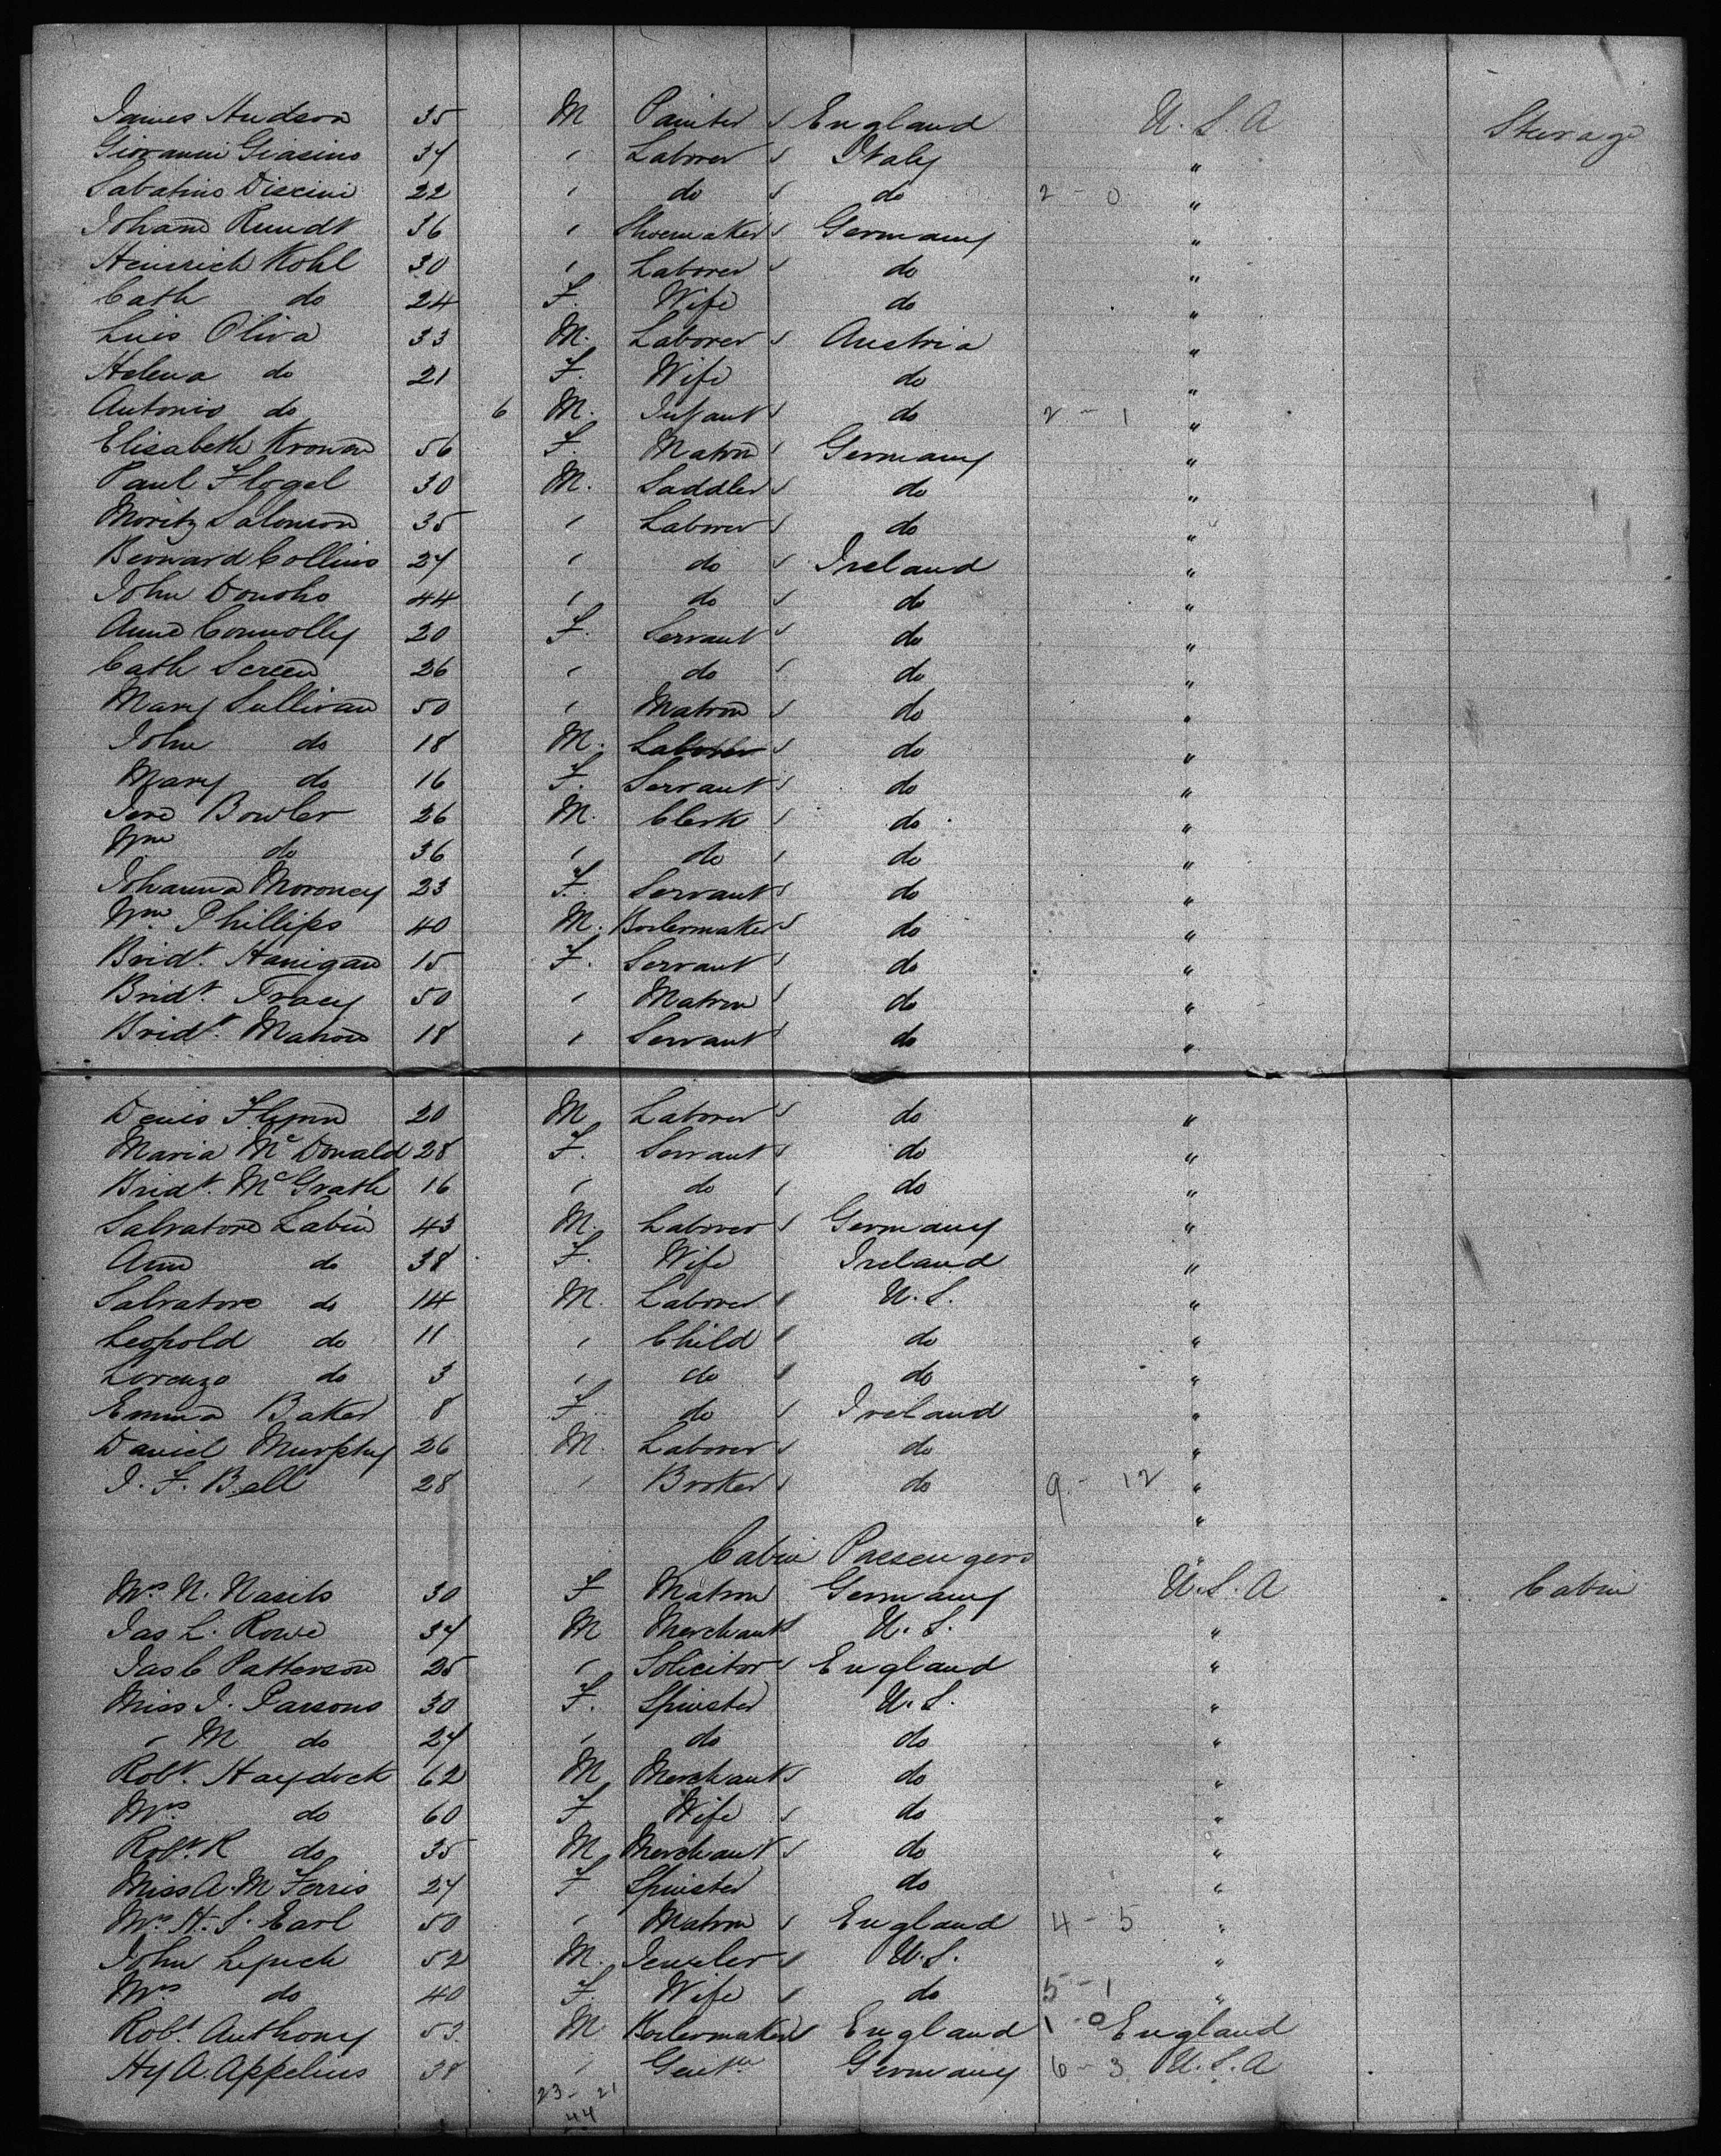 James Hudson 35 M Painter England U.S.A Sterage
Giovanni Giasino 34 " Laborer Italy "
Sabatino Discini 22 " do do 2 - 0 "
Johann Rundt 36 " Shoemaker Germany "
Heinrich Kohl 30 " Laborer do "
Cath do 24 F. Wife do "
Luis Oliva 33 M. Laborer Austria "
Helena do 21 F. Wife do "
Antonio do 6 M. Infant do 2 - 1 "
Elisabeth Kronan 56 F. Matron Germany "
Paul Flogel 30 M. Saddler do "
Moritz Salomon 35 " Laborer do "
Bernard Collins 24 " do Ireland "
John Donoho 44 " do do "
Anne Connolly 20 F. Servant do "
Cath Screen 26 " do do "
Mary Sullivan 50 " Matron do "
John do 18 M. Laborer do "
Mary do 16 F. Servant do "
Jere Bowler 26 M. Clerk do "
Wm do 36 " do do "
Johanna Moroney 23 F. Servant do "
Wm. Phillips 40 M. Boilermaker do "
Bridt. Hanigan 15 F. Servant do "
Bridt. Tracy 50 " Matron do "
Bridt. Mahon 18 " Servant do "
Denis Flynn 20 M Laborer do "
Maria McDonald 28 F. Servant do "
Bridt. McGrath 16 " do do "
Salvatore Labin 43 M. Laborer Germany "
Ann do 38 F. Wife Ireland "
Salvatore do 14 M. Laborer U.S. "
Leopold do 11 " Child do "
Lorenzo do 3 " do do "
Emma Baker 8 F. do Ireland "
Daniel Murphy 26 M. Laborer do "
J. F. Ball 28 " Broker do 9 - 12 "
"
Cabin Passengers "
Mrs N. Nasits 30 F Matron Germany U.S.A Cabin
Jas L. Rowe 34 M Merchant U.S. "
Jas C Patterson 25 " Solicitor England "
Miss J. Parsons 30 F. Spinster U.S. "
" M do 24 " do do "
Robt. Haydock 62 M Merchant do "
Mrs. do 60 F Wife do "
Robt. R do 35 M Merchant do "
Miss A. M Ferris 24 F Spinster do "
Mrs H. S. Earl 50 " Matron England 4 - 5 "
John Lynch 52 M. Jeweler U.S. "
Mrs do 40 F. Wife do 5 - 1 "
Robt. Anthony 53 M Boilermaker England 1 - 0 England
Hy A. Appelius 38 " Gentn Germany 6 - 3 U.S.A
23 - 21
44